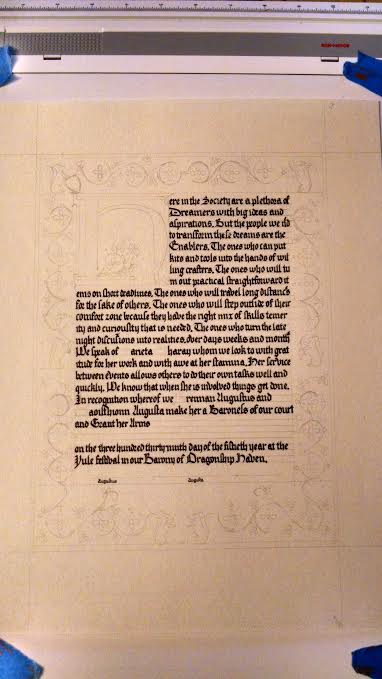 KOH-I-NOOR
ere in the Society are a plethora of
Dreamers with big ideas and
aspirations. But the people we nd
to transform these dreams are the
Enablers. The ones who can put
kits and tools into the hands of wil
ling crafters. The ones who will tu
rn out practical straightforward it
ems on short deadlines. The ones who will travel long distancs
for the sake of others. The ones who will step outside of their
comfort zone because they have the right mix of skills temer
ity and curiousity that is needed. The ones who turn the late
night discussions into realities, over days weeks and month
We speak of aneta haray whom we look to with grat
itude for her work and with awe at her stamina. Her service
between events allows others to do their own tasks well and
quickly. We know that when she is involved things get done.
In recognition whereof we rennan Augustus and
aoilfhionn Augusta make her a Baroness of our court
and Grant her Arms
on the three hundred thirty ninth day of the fiftieth year at the
Yule festival in our Barony of Dragonship Haven.
Augustus Augusta